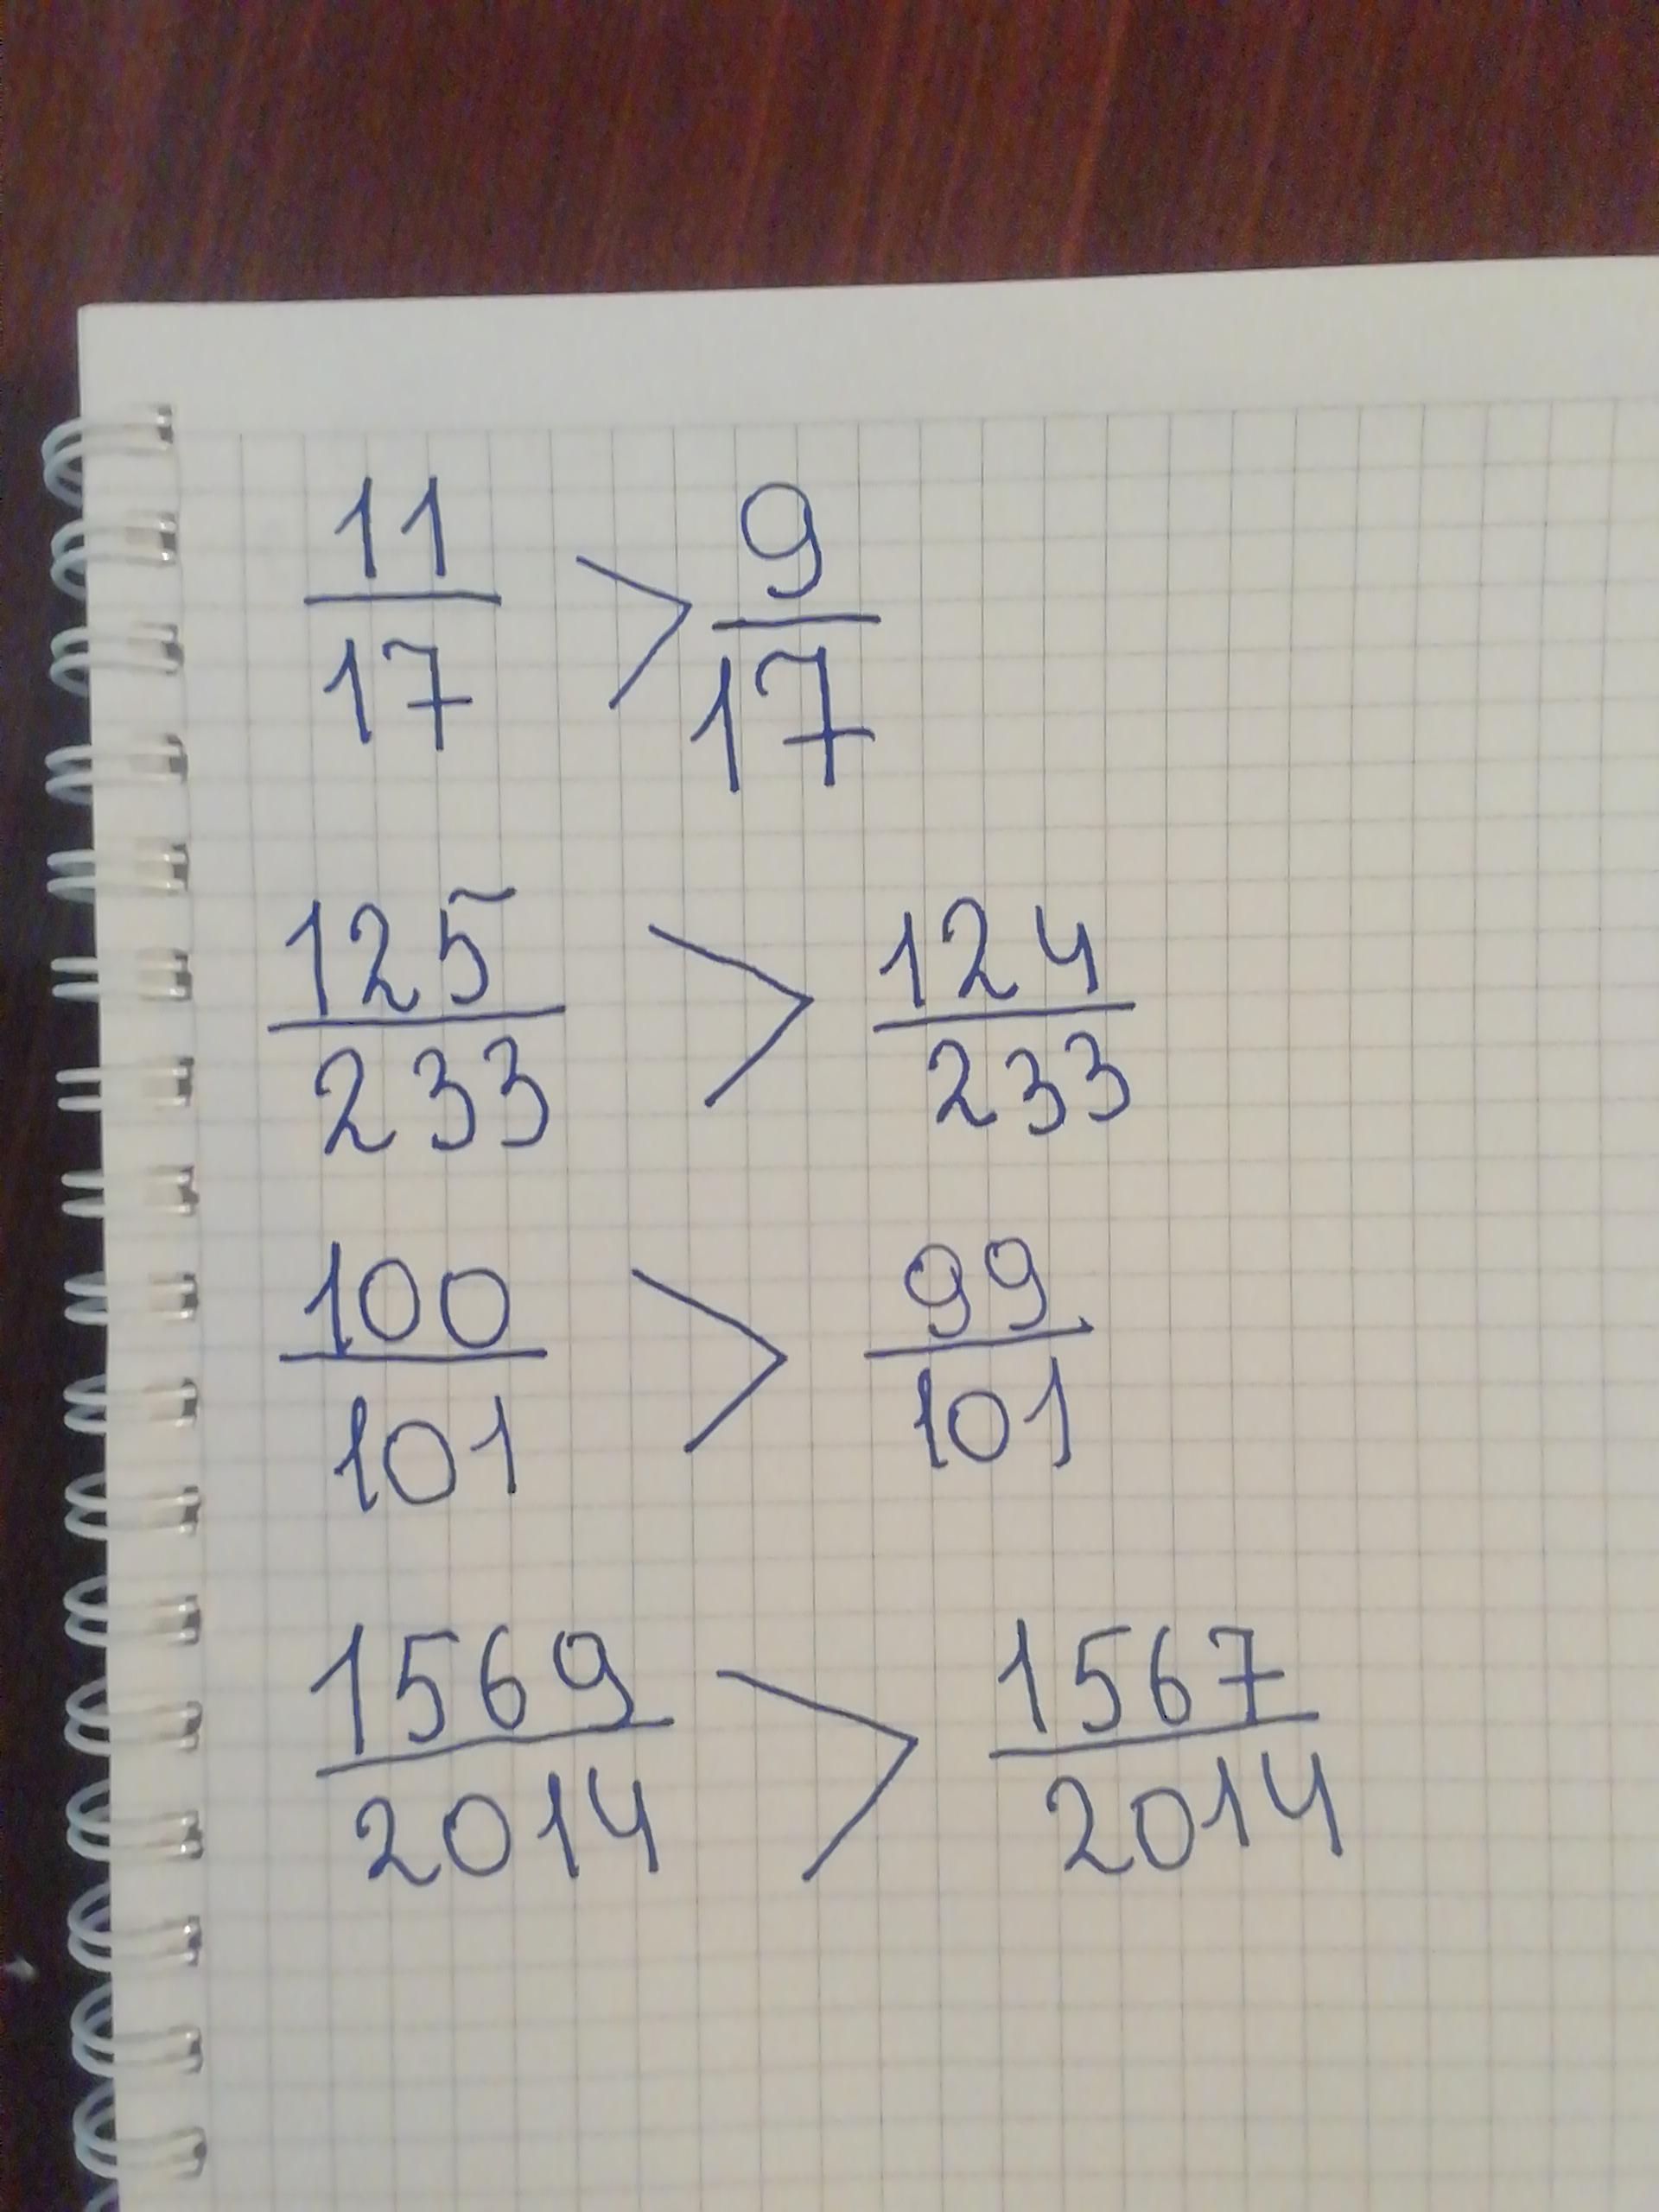 11/17 > 9/17
125/233 > 124/233
100/101 > 99/101
1569/2014 > 1567/2014